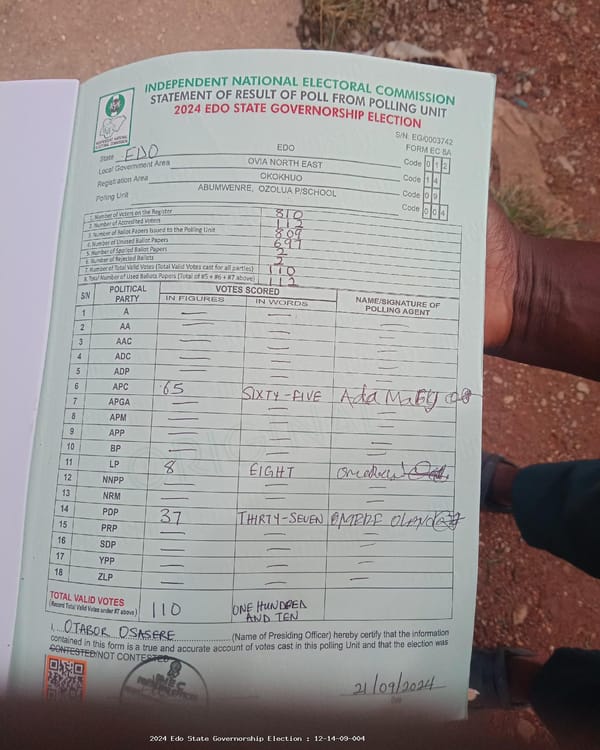 INDEPENDENT NATIONAL ELECTORAL COMMISSION
STATEMENT OF RESULT OF POLL FROM POLLING UNIT
2024 EDO STATE GOVERNORSHIP ELECTION
S/N: EG/0003742
FORM EC 8A
State EDO EDO Code 012
Local Government Area OVIA NORTH EAST Code 14
Registration Area OKOKHUO Code 09
Polling Unit ABUMWENRE, OZOLUA P/SCHOOL Code 004
1. Number of Voters on the Register 810
2. Number of Accredited Voters
3. Number of Ballot Papers Issued to the Polling Unit 809
4. Number of Unused Ballot Papers 697
5. Number of Spoiled Ballot Papers
6. Number of Rejected Ballots 2
7. Number of Total Valid Votes (Total Valid Votes cast for all parties) 110
8. Total Number of Used Ballots Papers (Total of #5 + #6 + #7 above) 112
S/N POLITICAL PARTY VOTES SCORED NAME/SIGNATURE OF POLLING AGENT
IN FIGURES IN WORDS
1 A
2 AA
3 AAC
4 ADC
5 ADP
6 APC 65 SIXTY-FIVE
7 APGA
8 APM
9 APP
10 BP
11 LP 8 EIGHT
12 NNPP
13 NRM
14 PDP 37 THIRTY-SEVEN
15 PRP
16 SDP
17 YPP
18 ZLP
TOTAL VALID VOTES
(Record Total Valid Votes under #7 above) 110 ONE HUNDRED AND TEN
I, OTABOR OSASERE (Name of Presiding Officer) hereby certify that the information
contained in this form is a true and accurate account of votes cast in this polling Unit and that the election was
CONTESTED/NOT CONTESTED
21/09/2024
2024 Edo State Governorship Election : 12-14-09-004